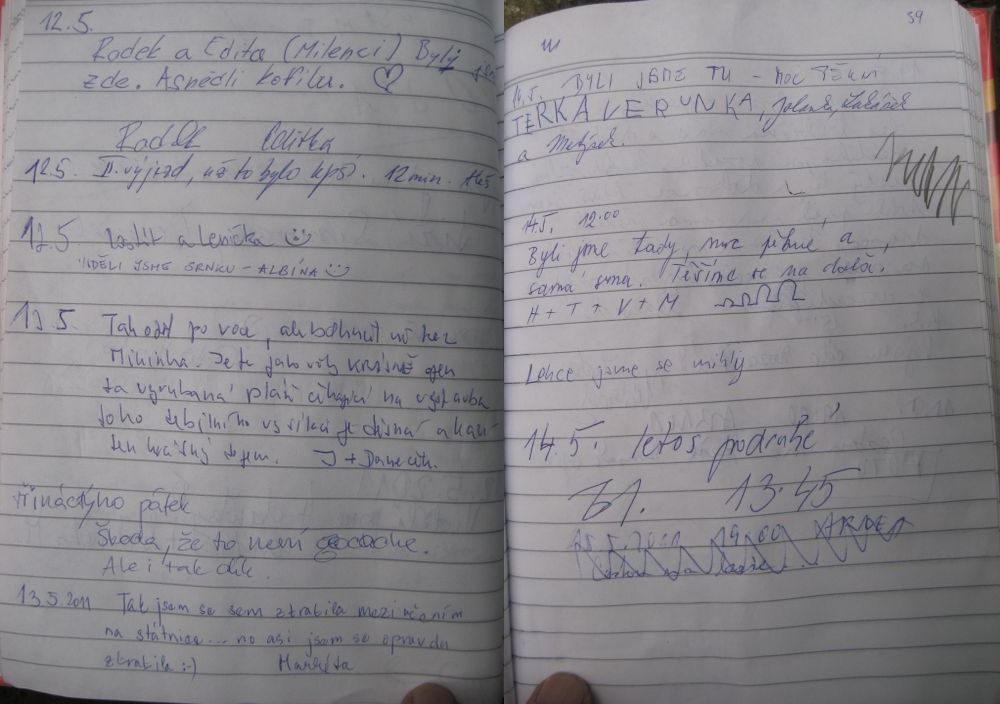 12.5.
Radek a Edita (Milenci) Byly
zde. Asnědli kofilu.
Radek Editka
12.5. II. výjezd, už to bylo lepší. 12 min. Aleš
12.5 a Lenička
VIDĚLI JSME SRNKU - ALBÍNA
13.5. Tak po
Mikinha. Je to jako vždy KRÁSNĚ
ta vyrubaná pláň čekající na výstavbu
toho debilního vysílače je děsná a kazí
ten krásný dojem. J + Dan
třináctýho pátek
Škoda, že to není geocache.
Ale i tak dík.
13.5.2011 Tak jsem se sem ztratila mezi učením
na státnice... no asi jsem se opravdu
ztratila :-) Markéta
59
14.5. BYLI JSME TU - MOC PĚKNÝ
TERKA VERUNKA, Jolana,
a
14.5. 12.00
Byli jsme tady, moc pěkné a
samá srna. Těšíme se na další.
H + T + V + M
Lehce jsme se mihly
14.5. letos podruhé
13.45
15.5.2011 19.00